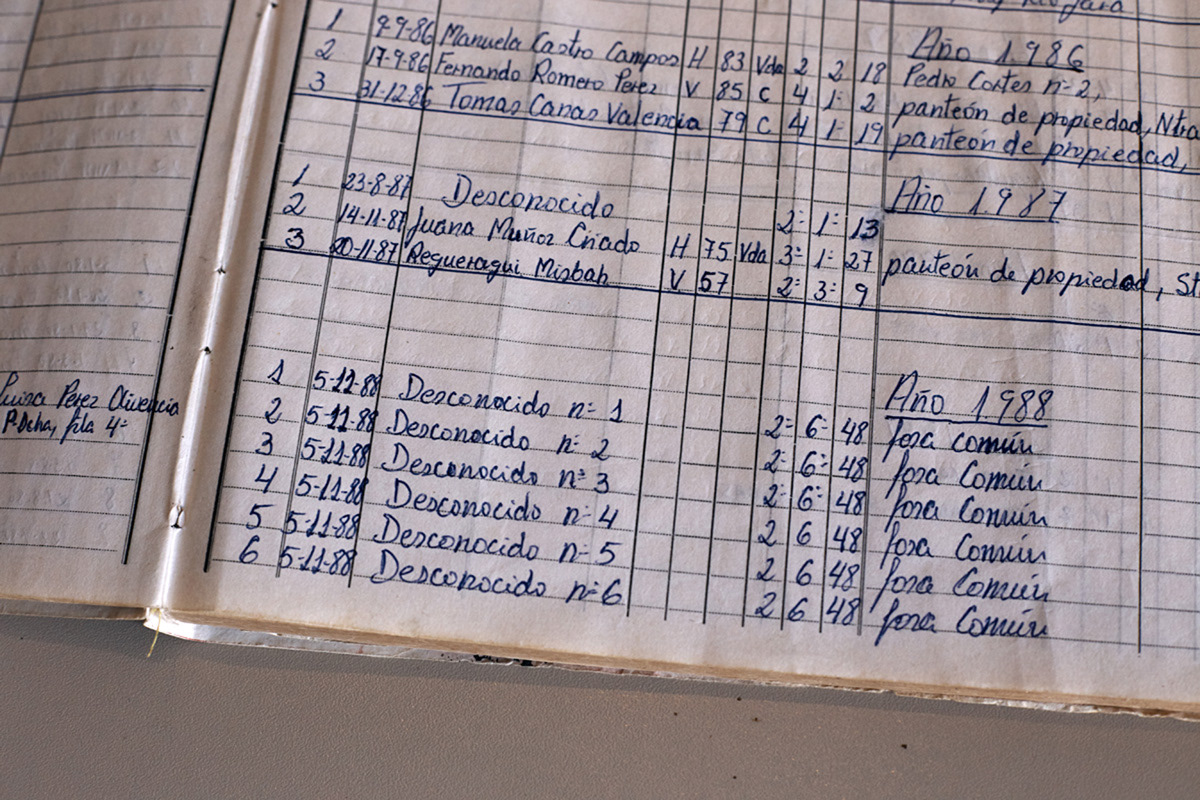 Año 1.986
1 9-9-86 Manuela Castro Campos H 83 Vda 2 2 18 Pedro Cortes nº 2,
2 17-9-86 Fernando Romero Perez V 85 C 4 1º 2 panteón de propiedad, Ntra
3 31-12-86 Tomas Canas Valencia 79 C 4 1º 19 panteón de propiedad,
Año 1.987
1 23-8-87 Desconocido 2º 1º 13
2 14-11-87 Juana Muñoz Criado H 75 Vda 3º 1º 27 panteón de propiedad, St
3 20-11-87 Regueragui Misbah V 57 2º 3º 9
Año 1.988
1 5-11-88 Desconocido nº 1 2º 6º 48 fosa común
2 5-11-88 Desconocido nº 2 2º 6º 48 fosa Común
3 5-11-88 Desconocido nº 3 2º 6º 48 fosa Común
4 5-11-88 Desconocido nº 4 2 6 48 fosa Común
5 5-11-88 Desconocido nº 5 2 6 48 fosa Común
6 5-11-88 Desconocido nº 6 2 6 48 fosa Común
Luisa Perez Olivencia
P. Dcha, fila 4º